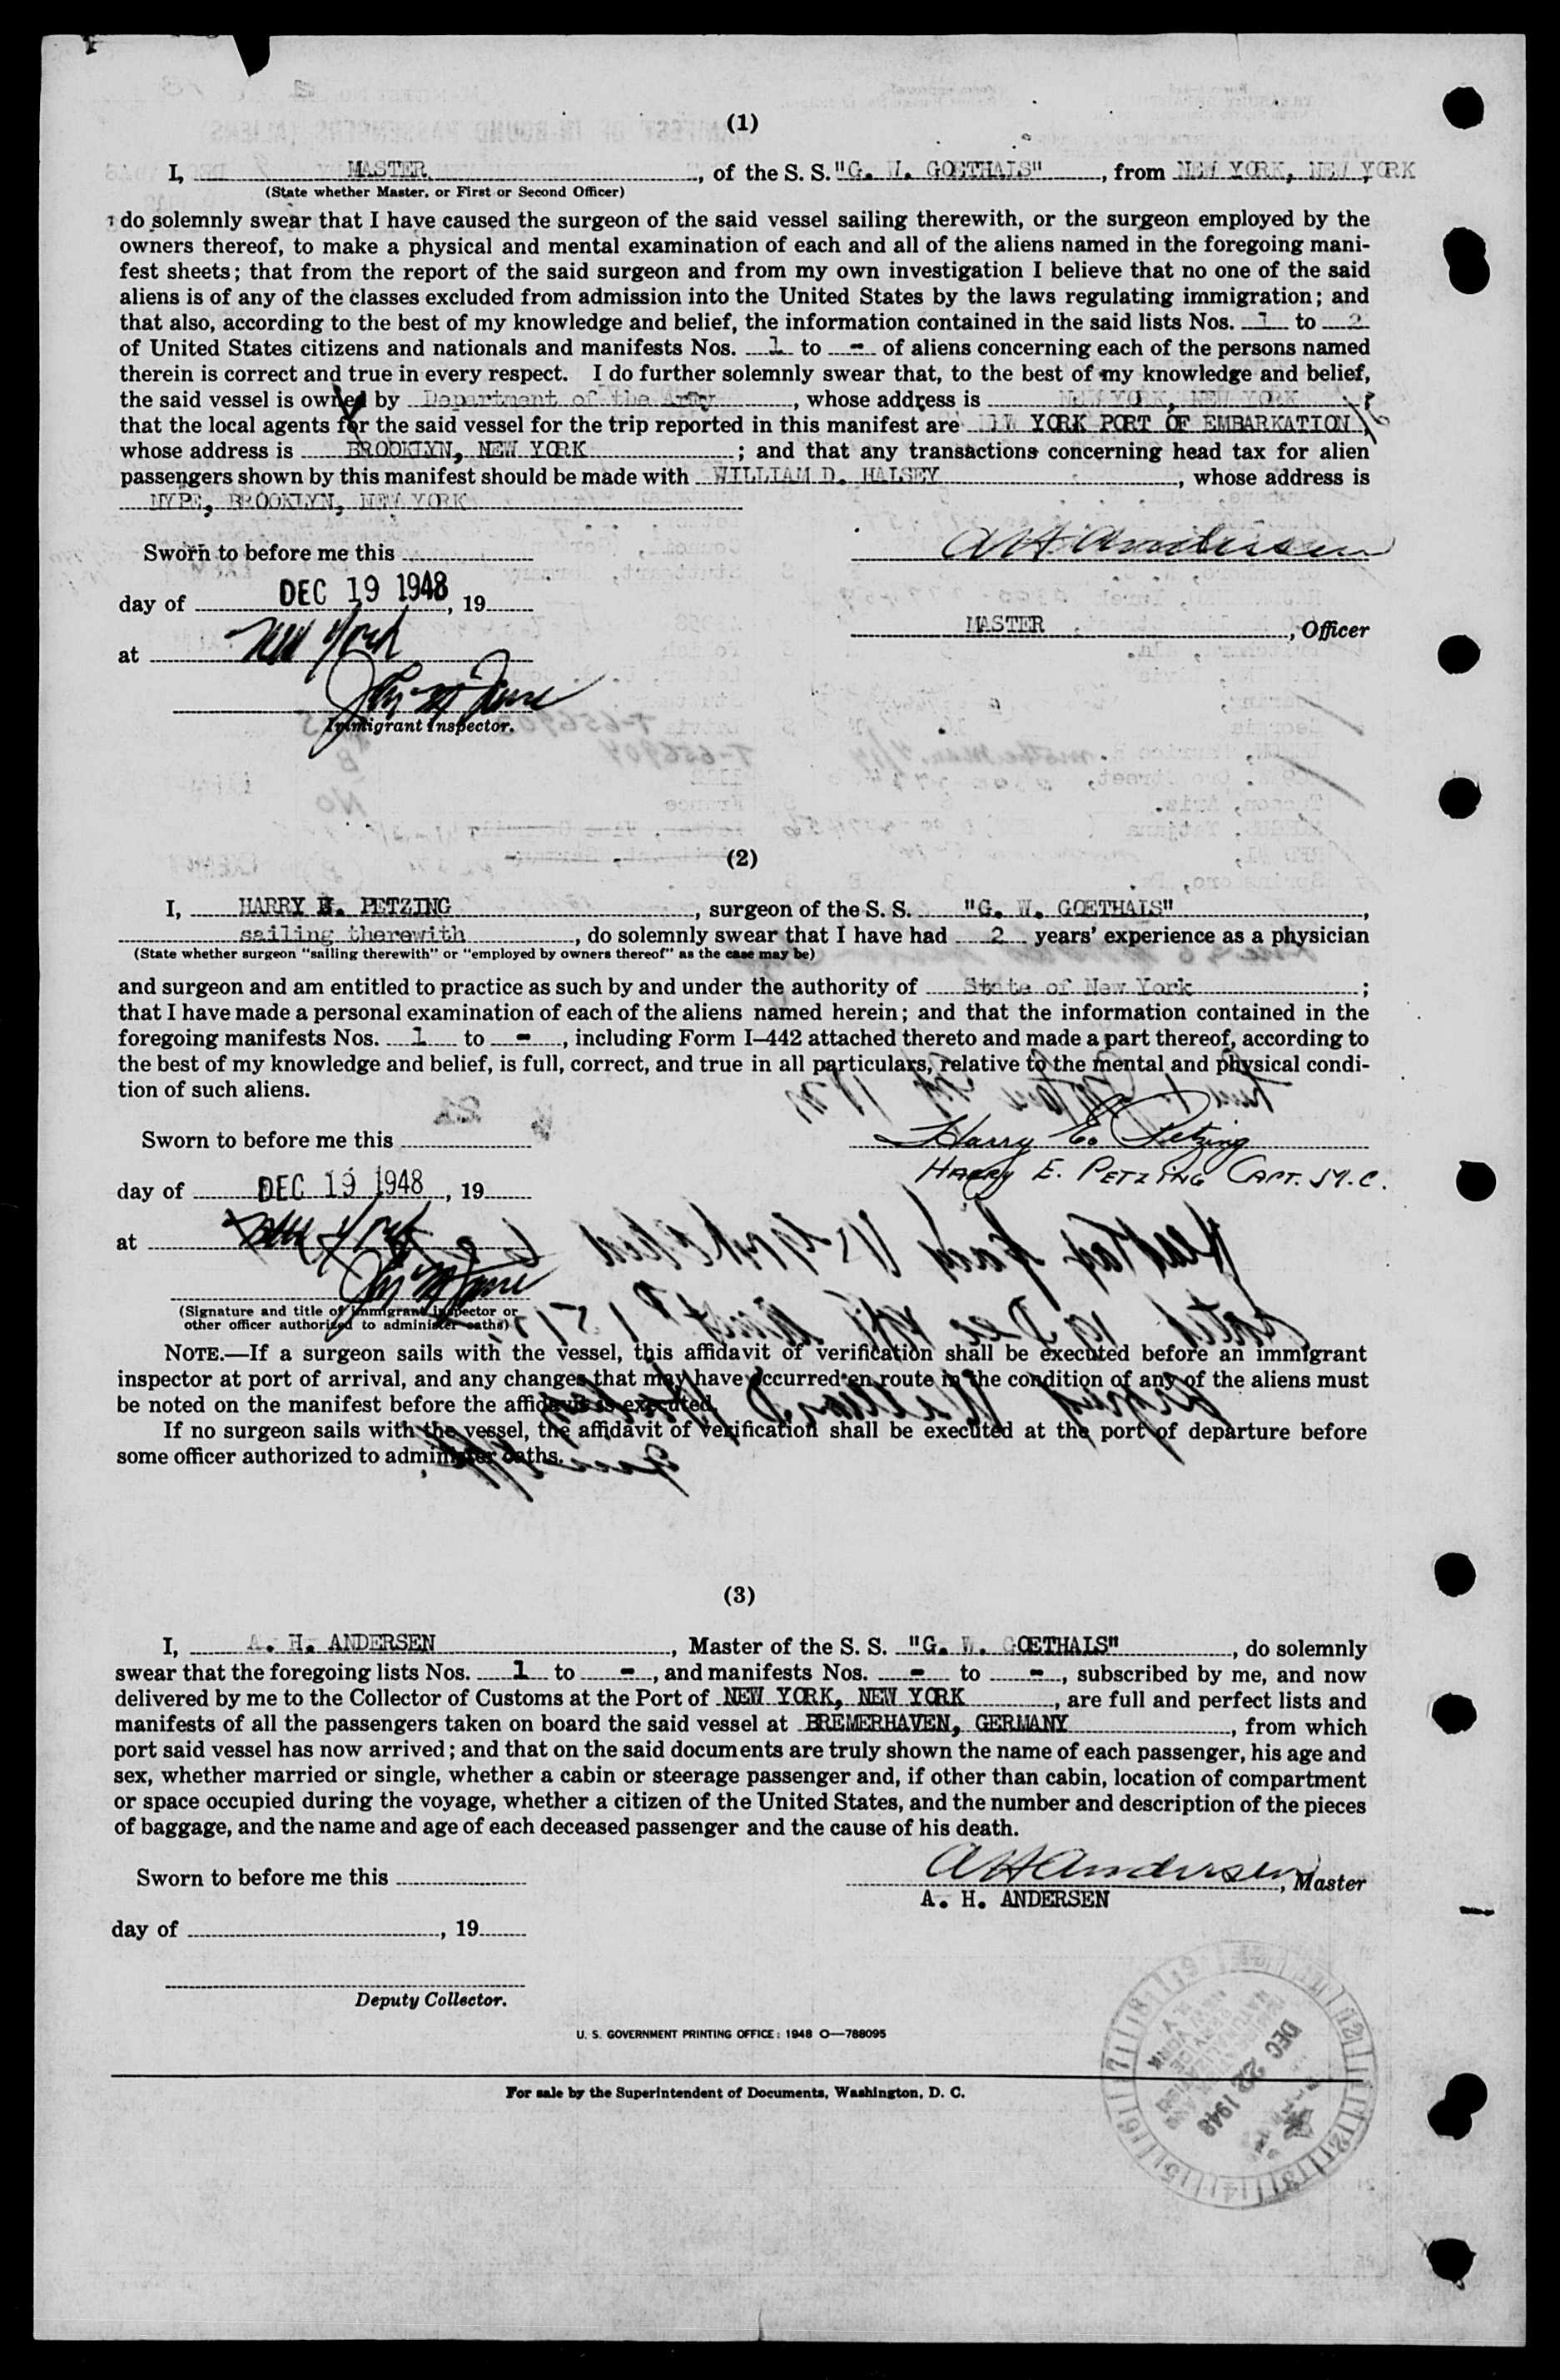 (1)
I, MASTER, of the S. S. "G. W. GOETHALS", from NEW YORK, NEW YORK
(State whether Master, or First or Second Officer)
do solemnly swear that I have caused the surgeon of the said vessel sailing therewith, or the surgeon employed by the
owners thereof, to make a physical and mental examination of each and all of the aliens named in the foregoing mani-
fest sheets; that from the report of the said surgeon and from my own investigation I believe that no one of the said
aliens is of any of the classes excluded from admission into the United States by the laws regulating immigration; and
that also, according to the best of my knowledge and belief, the information contained in the said lists Nos. 1 to 2
of United States citizens and nationals and manifests Nos. 1 to - of aliens concerning each of the persons named
therein is correct and true in every respect. I do further solemnly swear that, to the best of my knowledge and belief,
the said vessel is owned by Department of the Army, whose address is NEW YORK, NEW YORK;
that the local agents for the said vessel for the trip reported in this manifest are NEW YORK PORT OF EMBARKATION,
whose address is BROOKLYN, NEW YORK; and that any transactions concerning head tax for alien
passengers shown by this manifest should be made with WILLIAM D. HALSEY, whose address is
NYPE, BROOKLYN, NEW YORK
Sworn to before me this
A H Andersen
day of DEC 19 1948, 19
MASTER, Officer
at New York
Immigrant Inspector.
(2)
I, HARRY E. PETZING, surgeon of the S. S. "G. W. GOETHALS",
sailing therewith, do solemnly swear that I have had 2 years' experience as a physician
(State whether surgeon "sailing therewith" or "employed by owners thereof" as the case may be)
and surgeon and am entitled to practice as such by and under the authority of State of New York;
that I have made a personal examination of each of the aliens named herein; and that the information contained in the
foregoing manifests Nos. 1 to -, including Form I-442 attached thereto and made a part thereof, according to
the best of my knowledge and belief, is full, correct, and true in all particulars, relative to the mental and physical condi-
tion of such aliens.
Sworn to before me this
Harry E. Petzing
HARRY E. PETZING CAPT. M.C.
day of DEC 19 1948, 19
at New York
(Signature and title of immigrant inspector or
other officer authorized to administer oaths)
NOTE.—If a surgeon sails with the vessel, this affidavit of verification shall be executed before an immigrant
inspector at port of arrival, and any changes that may have occurred en route in the condition of any of the aliens must
be noted on the manifest before the affidavit is executed.
If no surgeon sails with the vessel, the affidavit of verification shall be executed at the port of departure before
some officer authorized to administer oaths.
(3)
I, A. H. ANDERSEN, Master of the S. S. "G. W. GOETHALS", do solemnly
swear that the foregoing lists Nos. 1 to -, and manifests Nos. - to -, subscribed by me, and now
delivered by me to the Collector of Customs at the Port of NEW YORK, NEW YORK, are full and perfect lists and
manifests of all the passengers taken on board the said vessel at BREMERHAVEN, GERMANY, from which
port said vessel has now arrived; and that on the said documents are truly shown the name of each passenger, his age and
sex, whether married or single, whether a cabin or steerage passenger and, if other than cabin, location of compartment
or space occupied during the voyage, whether a citizen of the United States, and the number and description of the pieces
of baggage, and the name and age of each deceased passenger and the cause of his death.
Sworn to before me this
A H Andersen, Master
A. H. ANDERSEN
day of , 19
Deputy Collector.
U. S. GOVERNMENT PRINTING OFFICE: 1948 O—788095
For sale by the Superintendent of Documents, Washington, D. C.
DEC 22 1948